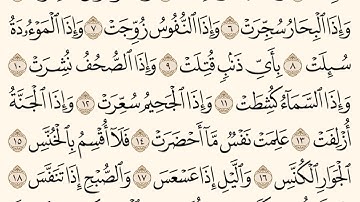 وَإِذَا ٱلۡبِحَارُ سُجِّرَتۡ ٦ وَإِذَا ٱلنُّفُوسُ زُوِّجَتۡ ٧ وَإِذَا ٱلۡمَوۡءُۥدَةُ
سُئِلَتۡ ٨ بِأَيِّ ذَنۢبٖ قُتِلَتۡ ٩ وَإِذَا ٱلصُّحُفُ نُشِرَتۡ ١٠
وَإِذَا ٱلسَّمَآءُ كُشِطَتۡ ١١ وَإِذَا ٱلۡجَحِيمُ سُعِّرَتۡ ١٢ وَإِذَا ٱلۡجَنَّةُ
أُزۡلِفَتۡ ١٣ عَلِمَتۡ نَفۡسٞ مَّآ أَحۡضَرَتۡ ١٤ فَلَآ أُقۡسِمُ بِٱلۡخُنَّسِ ١٥
ٱلۡجَوَارِ ٱلۡكُنَّسِ ١٦ وَٱلَّيۡلِ إِذَا عَسۡعَسَ ١٧ وَٱلصُّبۡحِ إِذَا تَنَفَّسَ ١٨